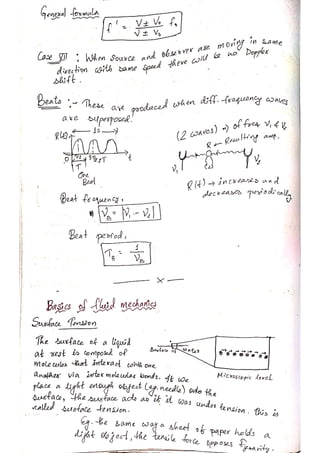 General formula
f' = V ± V₀ / V ± Vₛ f₀
Case VII : When source and observer are moving in same
direction with same speed there will be no Doppler
shift.
Beats :- These are produced when diff. frequency waves
are superposed.
R(t)
1s
(2 waves) → of freq V₁ & V₂
R → Resulting amp.
0 T/2 T 3T/2 2T t
T
One
Beat
V₁ V₂
R(t) → increases and
decreases periodically
Beat frequency,
V_B = |V₁ - V₂|
Beat period,
T_B = 1/V_B
x
Basics of fluid mechanics
Surface Tension
The surface of a liquid
at rest is composed of
molecules that interact with one
another via intermolecular bonds. If we
place a light enough object (eg. needle) onto the
surface, the surface acts as if it was under tension. This is
called surface tension.
Surface of Water
Microscopic level
Eg. the same way a sheet of paper holds a
light object, the tensile force opposes gravity.